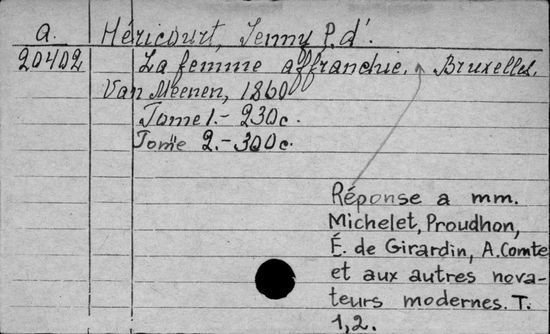 a. Héricourt, Jenny P. d'.
20402 La femme affranchie. Bruxelles,
Van Meenen, 1860
Tome 1.- 230 c.
Tome 2.- 300 c.
Réponse a mm.
Michelet, Proudhon,
É. de Girardin, A. Comte
et aux autres nova-
teurs modernes. T.
1,2.